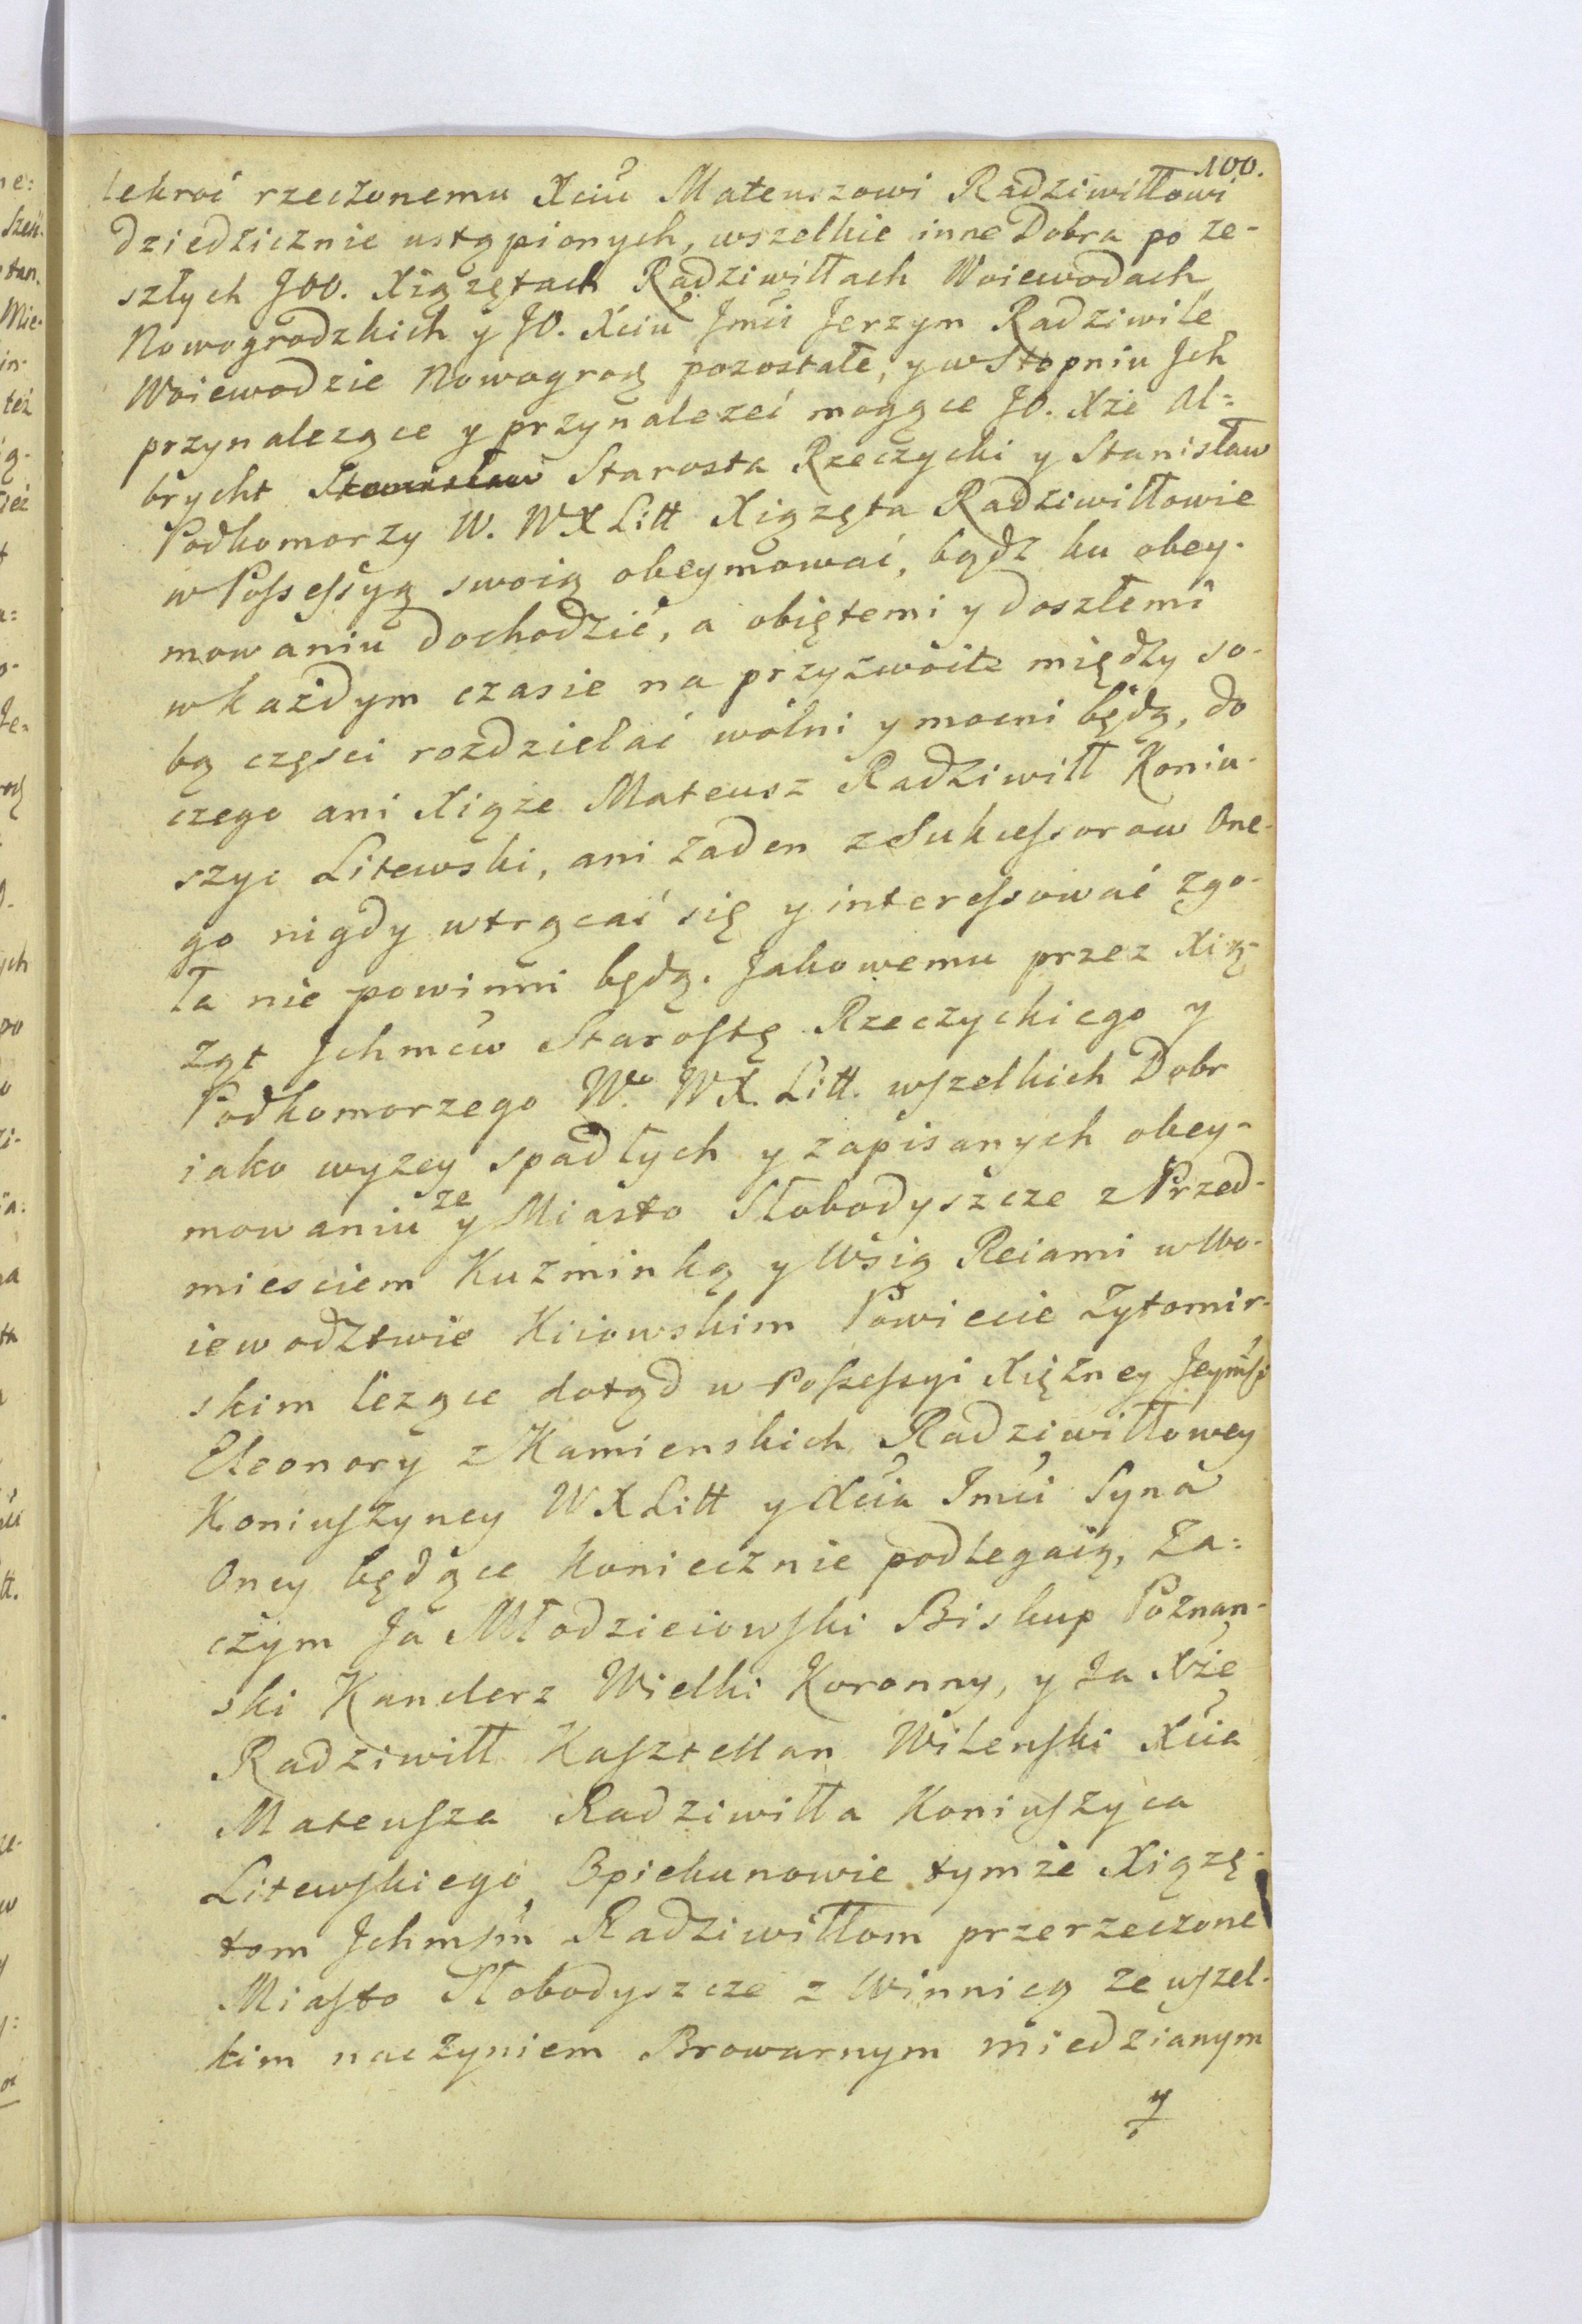 100.
lekroć rzeczonemu Xciu Mateuszowi Radziwiłłowi
dziedzicznie ustąpionych, wszelkie inne Dobra po ze-
szłych JOO. Xiązętach Radziwiłłach Woiewodach
Nowogrodzkich y JO. Xciu Jmci Jerzym Radziwile
Woiewodzie Nowogrod pozostałe, y w Stopniu Jch
przynalezące y przynalezeć mogące JO. Xże Al=
brycht Stanisław Starosta Rzeczycki y Stanisław
Podkomorzy W. WXLitt Xiązęta Radziwiłłowie
w Possessyą swoią obeymować, bądz ku obey-
mowaniu dochodzić, a obiętemi y doszłemi
w każdym czasie na przyzwoite między so-
bą częsci rozdzielać wolni y mocni będą, do
czego ani Xiąże Mateusz Radziwiłł Koniu-
szyc Litewski, ani żaden z Sukcessorow One-
go nigdy wtrącać się y interessować zgo-
ła nie powinni będą. Jakowemu przez Xią-
ząt Jchmćw Starostę Rzeczyckiego y
Podkomorzego Wo. WX. Litt. wszelkich Dobr
iako wyzey spadłych y zapisanych obey-
mowaniu ze y Miasto Słobodyszcze z Przed-
miesciem Kuzminką y Wsią Reiami w Wo-
iewodztwie Kiiowskim Powiecie Zytomir-
skim lezące dotąd w Possessyi Xiężney Jeymśi
Eleonory z Kamienskich Radziwiłłowey
Koniuszyney WXLitt y Xcia Jmci Syna
Oney będące koniecznie podlegaią, Za=
czym Ja Młodzieiowski Biskup Poznan-
ski Kanclerz Wielki Koronny, y Ja Xże
Radziwiłł Kasztellan Wilenski Xcia
Mateusza Radziwiłła Koniuszyca
Litewskiego Opiekunowie tymże Xiązę-
tom Jchmśm Radziwiłłom przerzeczone
Miasto Słobodyszcze z Winnicą ze wszel-
kim naczyniem Browarnym miedzianym
y